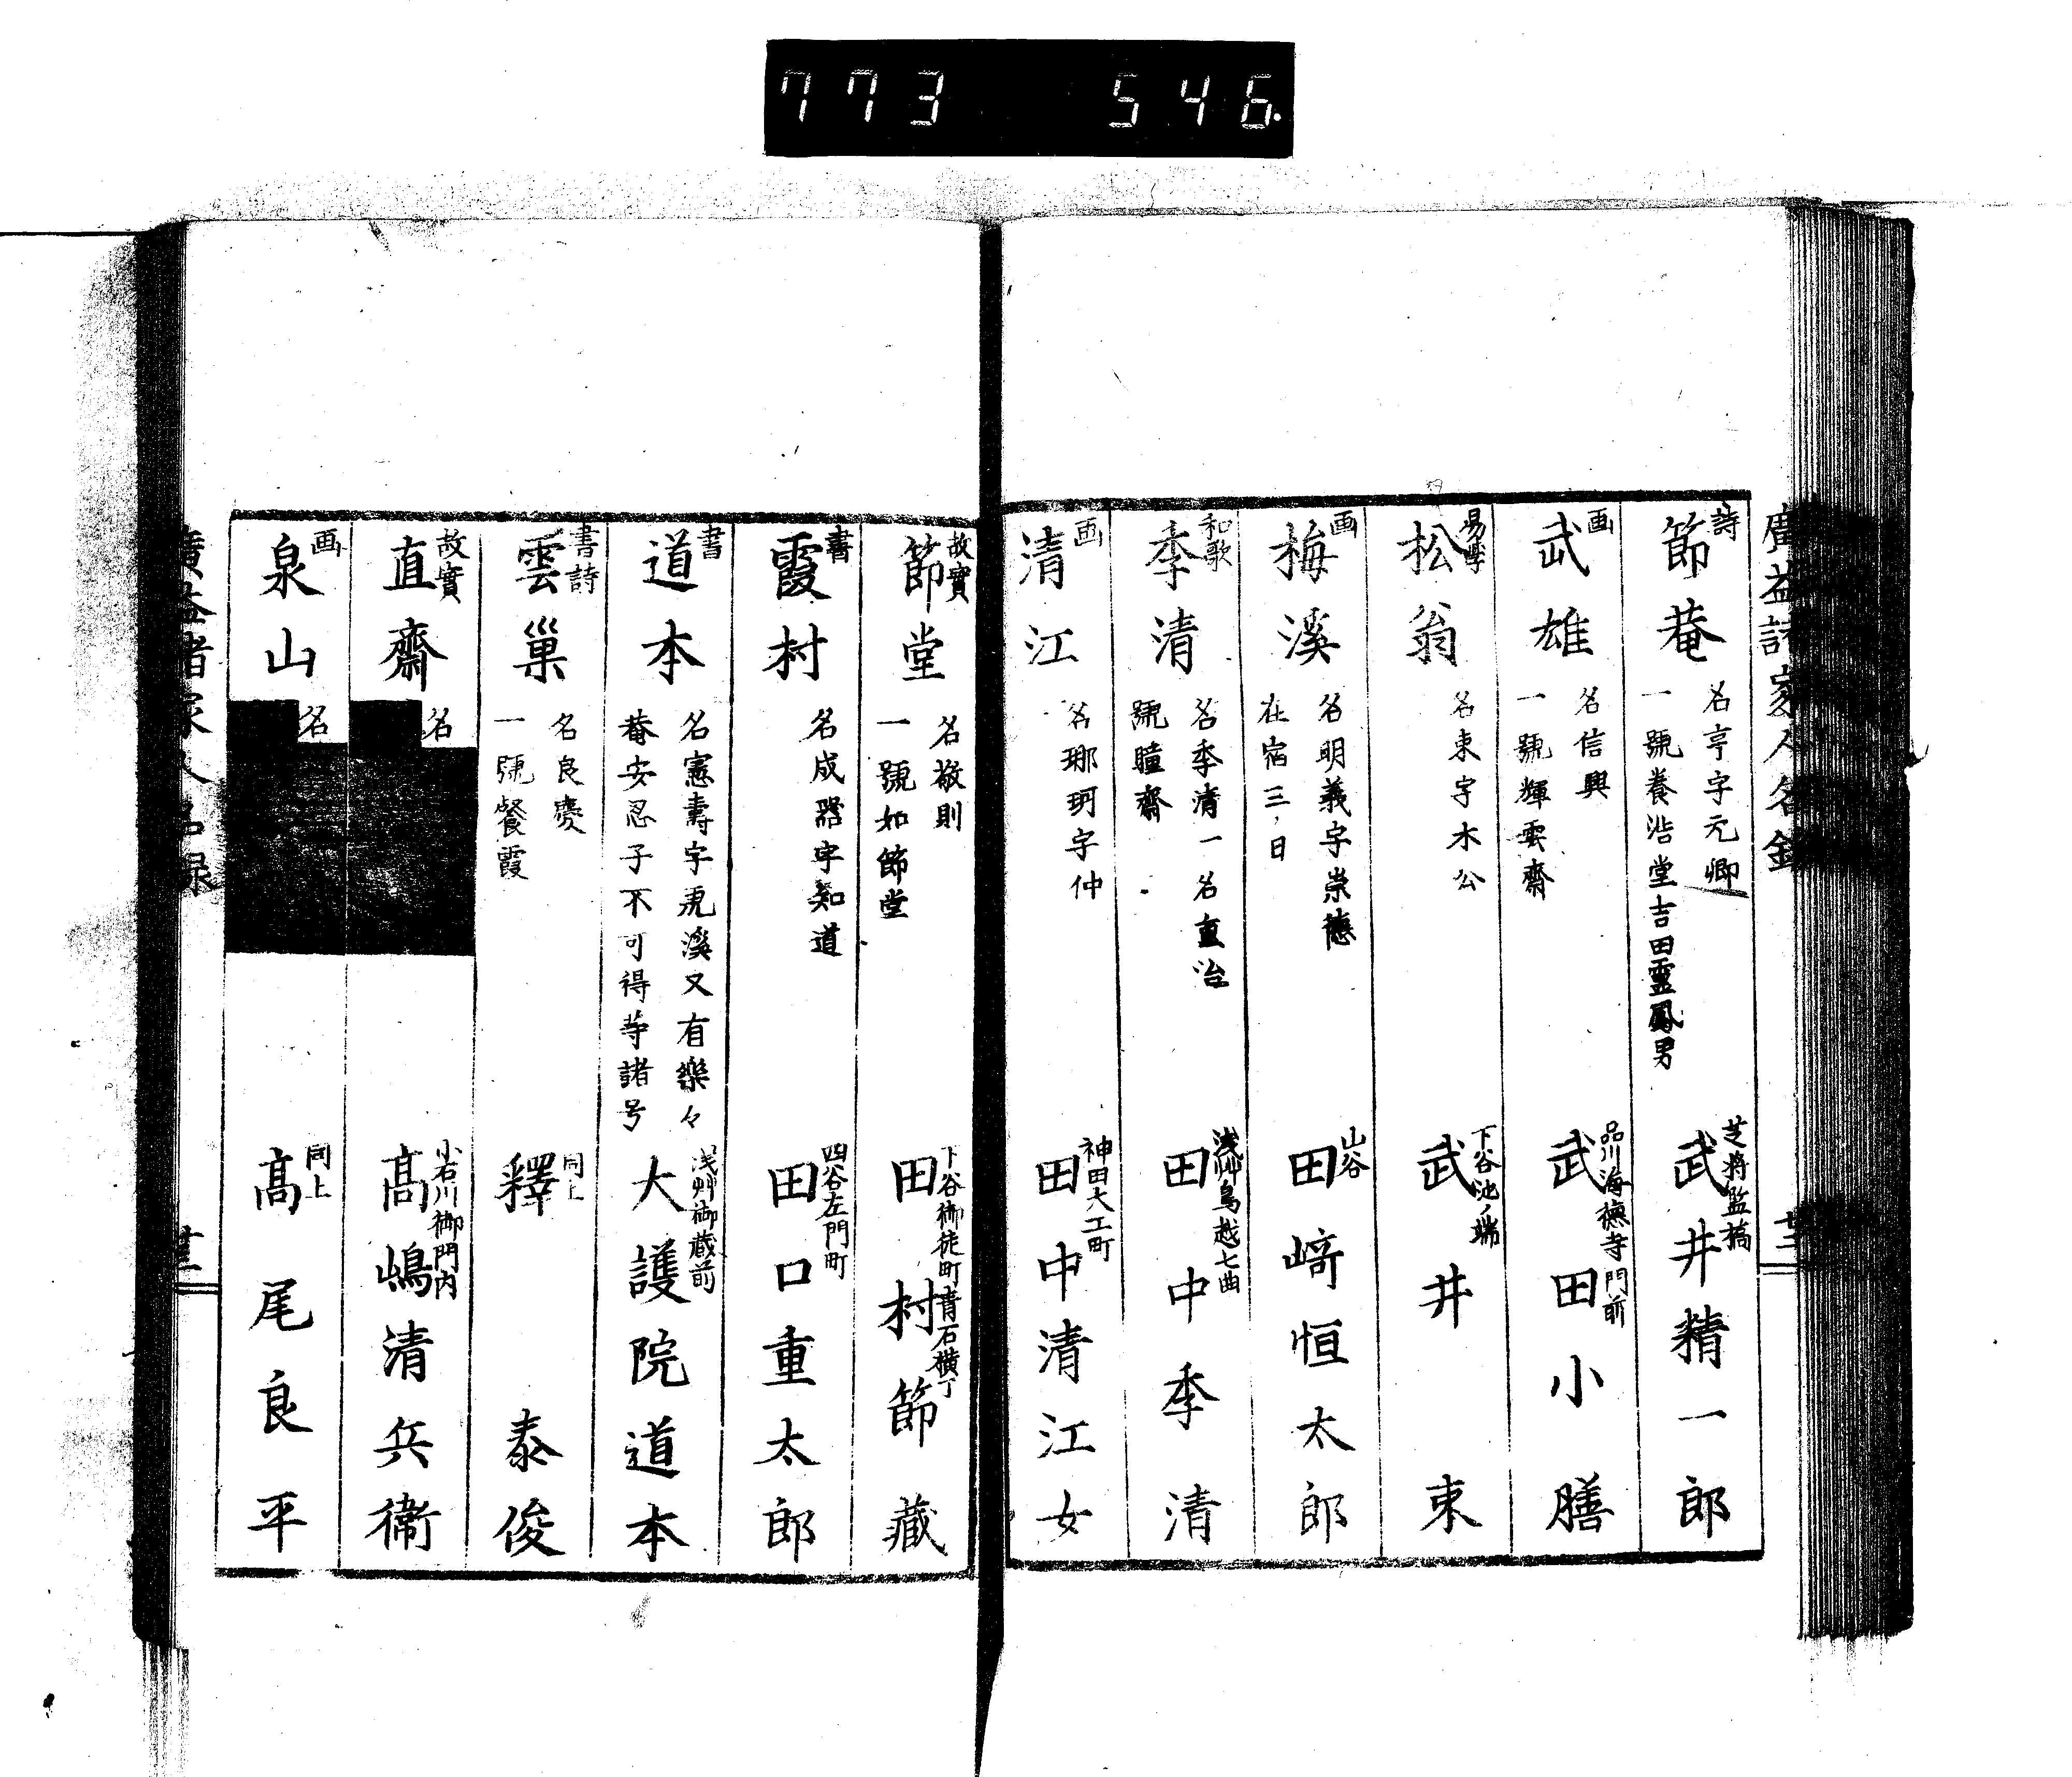 773 546.
廣益諸家人名録
詩
節菴
名亨字元卿
一號養浩堂吉田靈鳳男
芝将監橋
武井精一郎
画
武雄
名信興
一號輝雲齋
品川海德寺門前
武田小膳
易學
松翁
名東字木公
下谷池ノ端
武井東
画
梅溪
名明義字崇德
在宿三、日
山谷
田﨑恒太郎
和歌
季清
名季清一名重治
號瞳齋
浅艸鳥越七曲
田中季清
画
清江
名瑘玥字仲
神田大工町
田中清江女
故實
節堂
名敬則
一號如節堂
下谷御徒町青石横丁
田村節藏
書
霞村
名成器字知道
四谷左門町
田口重太郎
書
道本
名憲壽字虎溪又有樂々
菴安忍子不可得等諸号
浅艸御蔵前
大護院道本
書詩
雲巢
名良慶
一號餐霞
同上
釋泰俊
故實
直齋
名
小石川御門内
髙嶋清兵衞
画
泉山
名
同上
髙尾良平
廣益諸家人名録